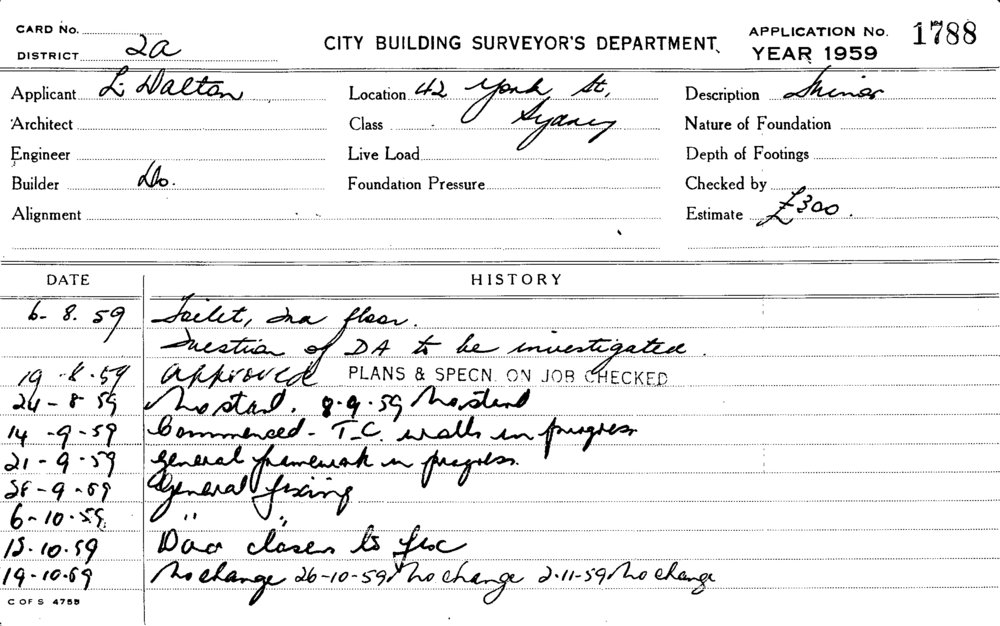 CARD No.
DISTRICT 2a
CITY BUILDING SURVEYOR'S DEPARTMENT
APPLICATION No. 1788
YEAR 1959
Applicant L. Dalton Location 42 York St, Description Minor
Architect Class Sydney Nature of Foundation
Engineer Live Load Depth of Footings
Builder Do. Foundation Pressure Checked by
Alignment Estimate £300.
DATE HISTORY
6-8.59 Toilet, floor.
Question of DA to be investigated.
19-8-59 Approved PLANS & SPECN. ON JOB CHECKED
24-8-59 No start. 8-9-59 No start
14-9-59 Commenced - T.C. walls in progress
21-9-59 General framework in progress.
28-9-59 General fixing
6-10-59 " "
-10.59 Door closers to fix
19-10-59 No change 26-10-59 No change 2-11-59 No change
C OF S 4755